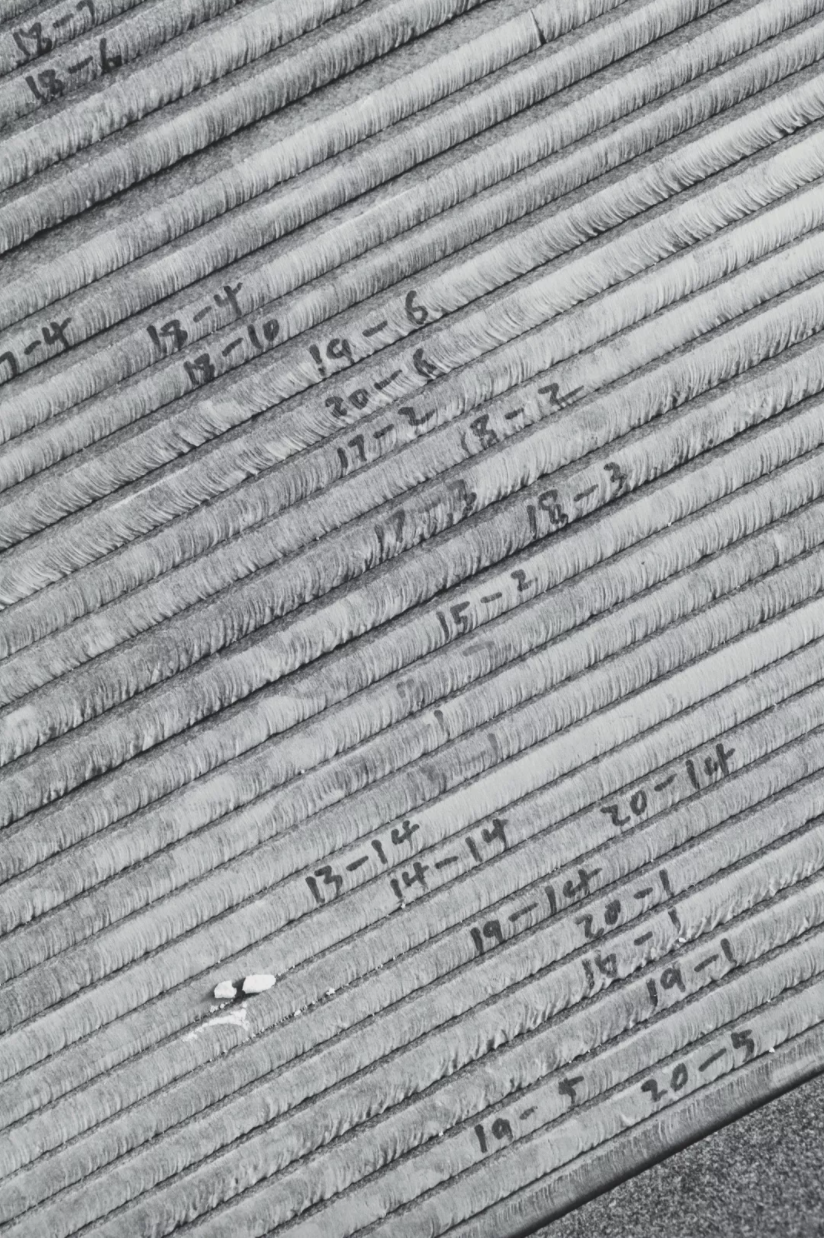 18-7
18-6
18-4
7-4
18-10
19-6
20-6
17-2
18-2
17-3
18-3
15-2
20-14
13-14
14-14
19-14
20-1
18-1
19-1
20-5
19-5